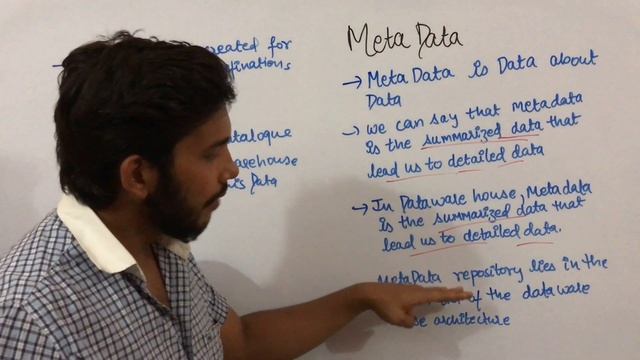 created for
MetaData
→ MetaData is Data about
Data
→ we can say that Metadata
is the summarized data that
lead us to detailed data
atalogue
arehouse
is Data
→ In Dataware house, Metadata
is the summarized data that
lead us to detailed data.
MetaData repository lies in the
of the dataware
se architecture